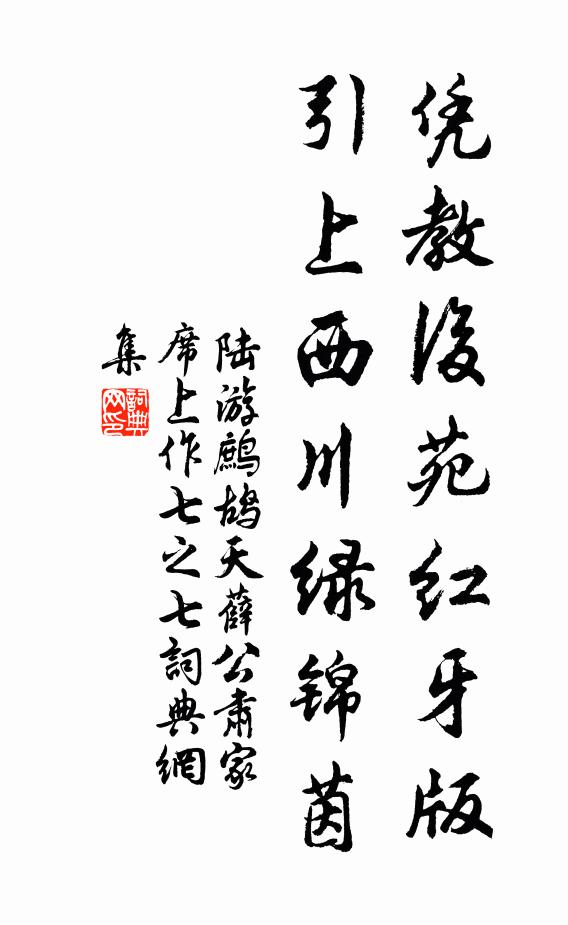 凭教後苑红牙版
引上西川绿锦茵
陆游鹧鸪天薛公肃家
席上作七之七詞典網
集
詞典
网印